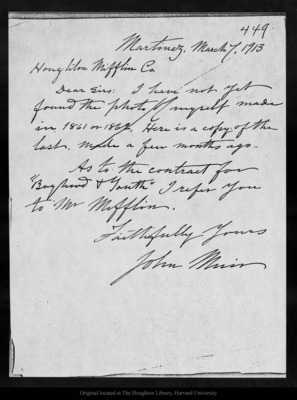 449
Martinez, March 7, 1913
Houghton Mifflin Co
Dear Sirs: I have not yet
found the photo of myself made
in 1861 or 1862. Here is a copy of the
last made a few months ago.
As to the contract for
"Boyhood & Youth" I refer you
to Mr Mifflin.
Faithfully Yours
John Muir
Original located at The Houghton Library, Harvard University